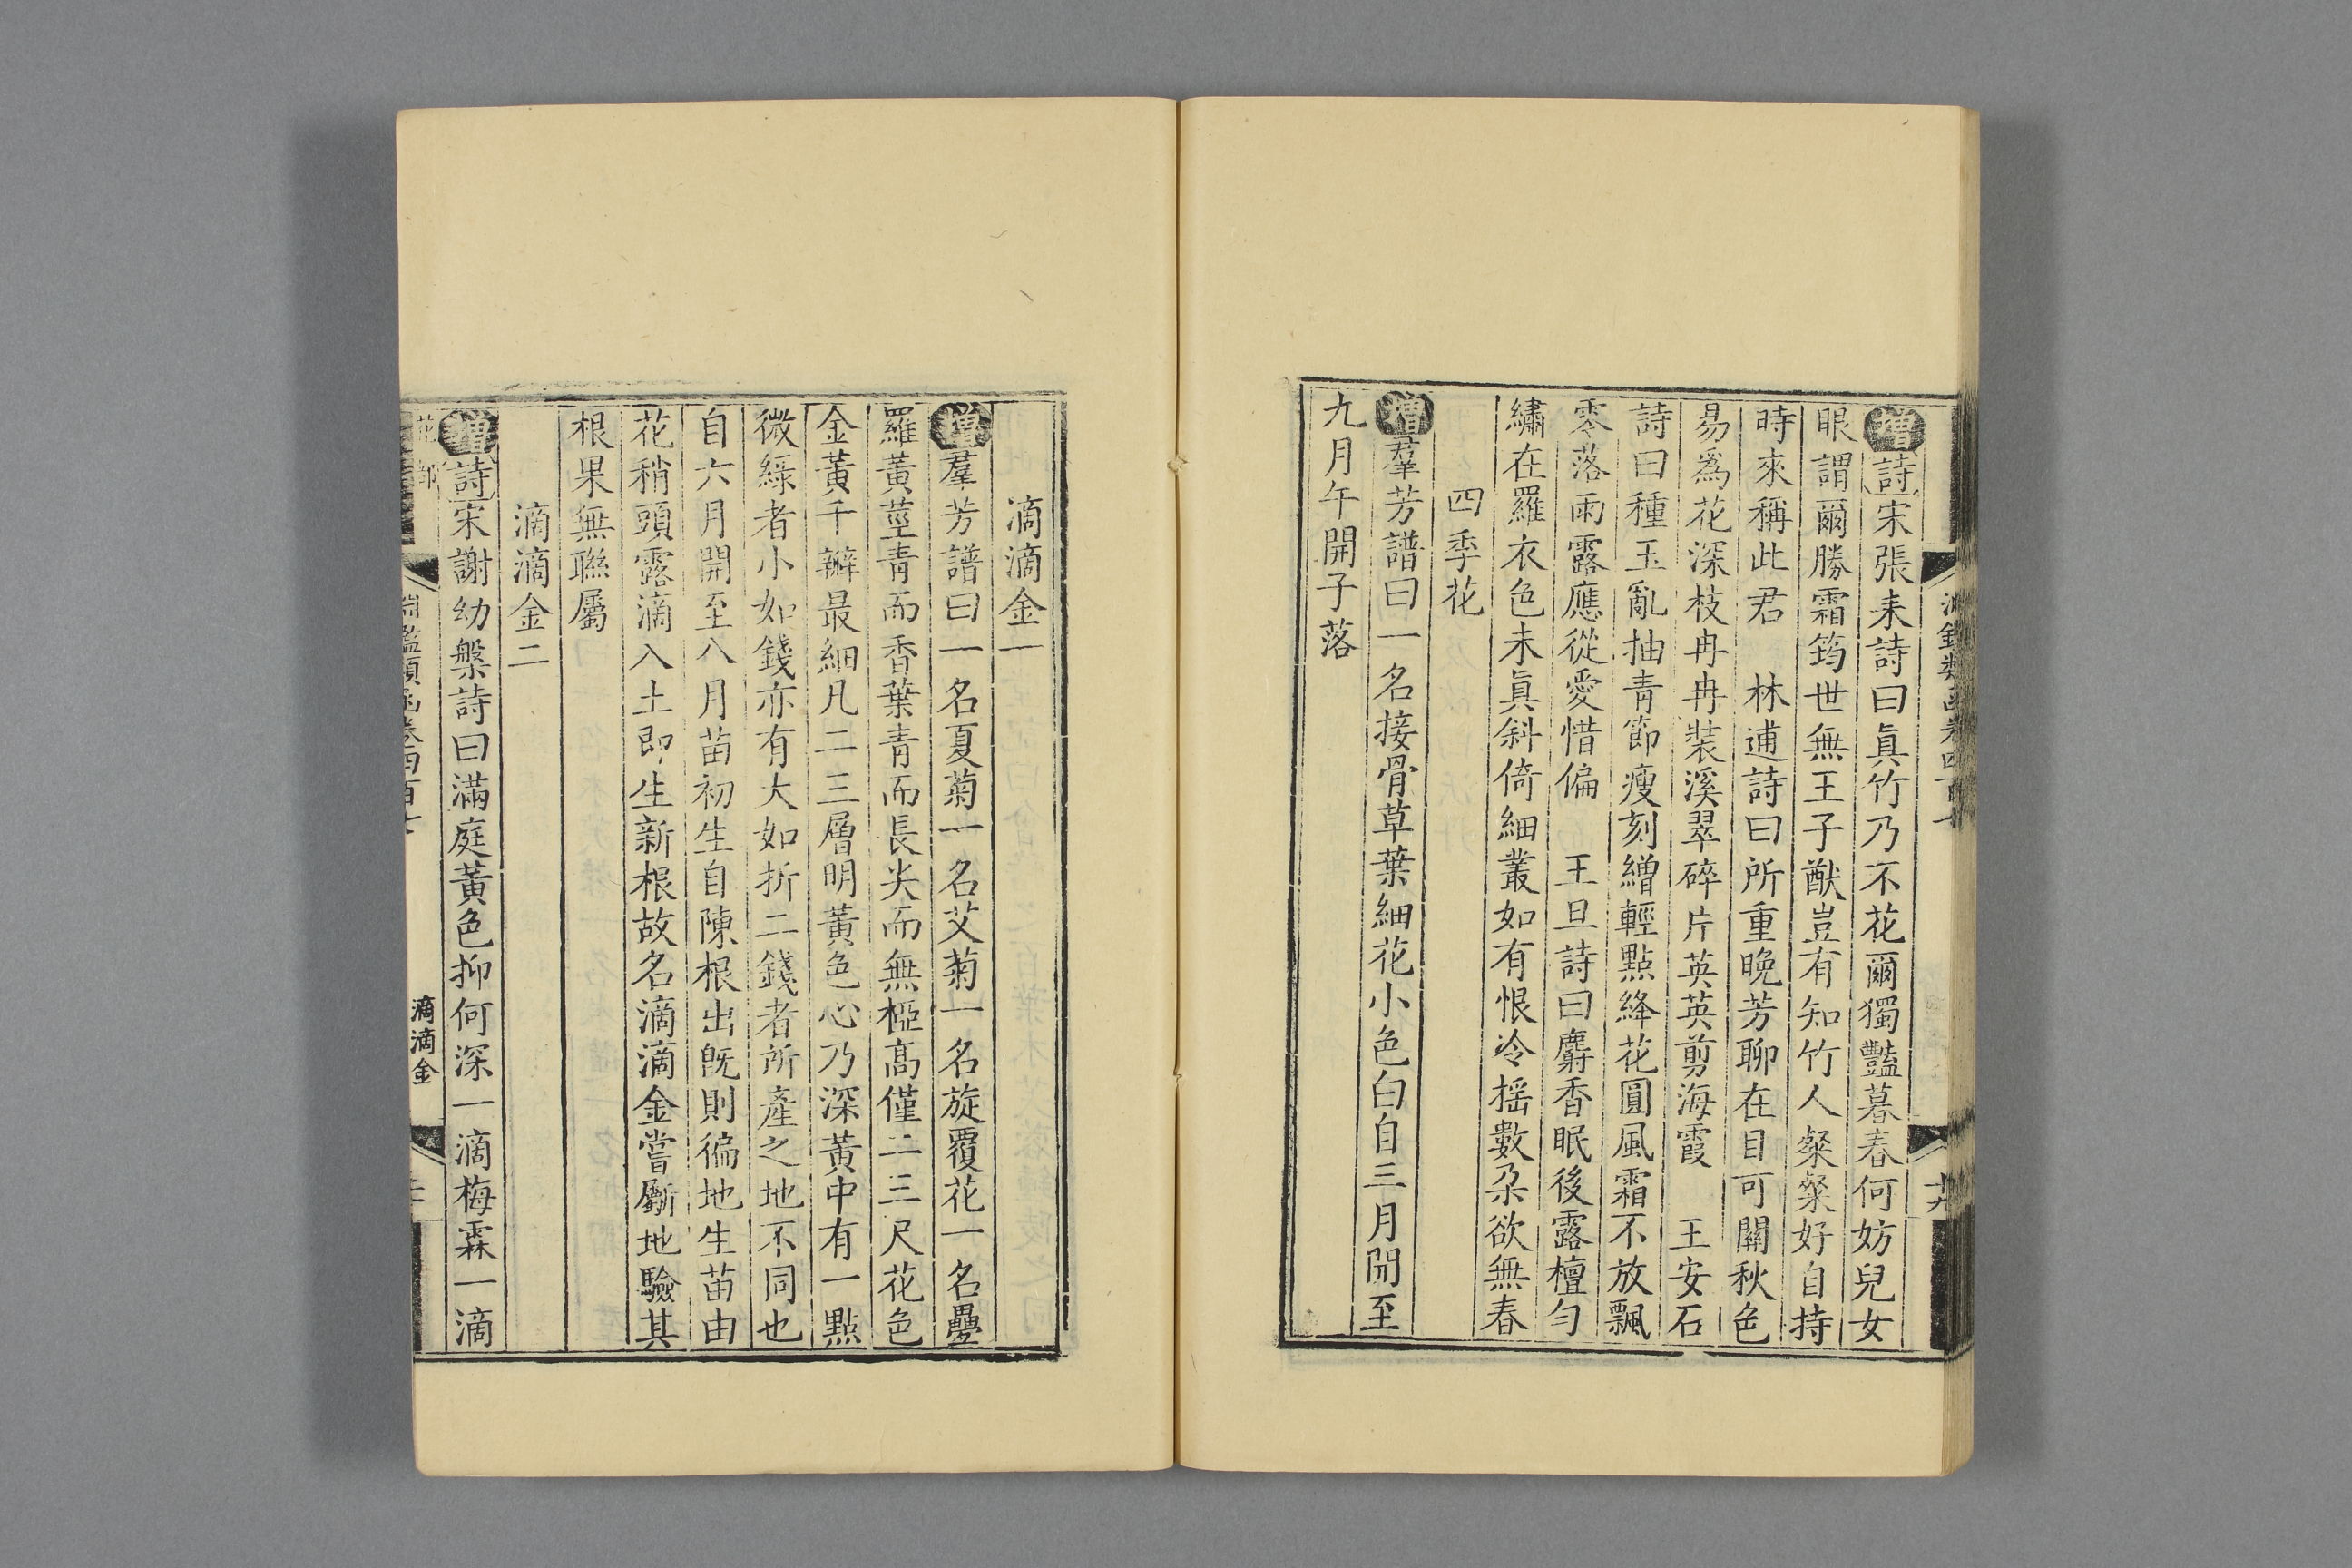 增詩宋張耒詩曰眞竹乃不花爾獨豔暮春何妨兒女
眼謂爾勝霜筠世無王子猷豈有知竹人粲粲好自持
時來稱此君 林逋詩曰所重晚芳聊在目可關秋色
易爲花深枝冉冉裝溪翠碎片英英剪海霞 王安石
詩曰種玉亂抽青節瘦刻繒輕點絳花圓風霜不放飄
零落雨露應從愛惜偏 王旦詩曰麝香眠後露檀勻
繡在羅衣色未眞斜倚細叢如有恨冷搖數朶欲無春
四季花
增羣芳譜曰一名接骨草葉細花小色白自三月開至
九月午開子落
滴滴金一
增羣芳譜曰一名夏菊一名艾菊一名旋覆花一名疊
羅黃莖青而香葉青而長尖而無椏高僅二三尺花色
金黃千瓣最細凡二三層明黃色心乃深黃中有一點
微綠者小如錢亦有大如折二錢者所產之地不同也
自六月開至八月苗初生自陳根出旣則徧地生苗由
花稍頭露滴入土即生新根故名滴滴金嘗劚地驗其
根果無聯屬
滴滴金二
增詩宋謝幼槃詩曰滿庭黃色抑何深一滴梅霖一滴
淵鑑類函卷四百七
滴滴金